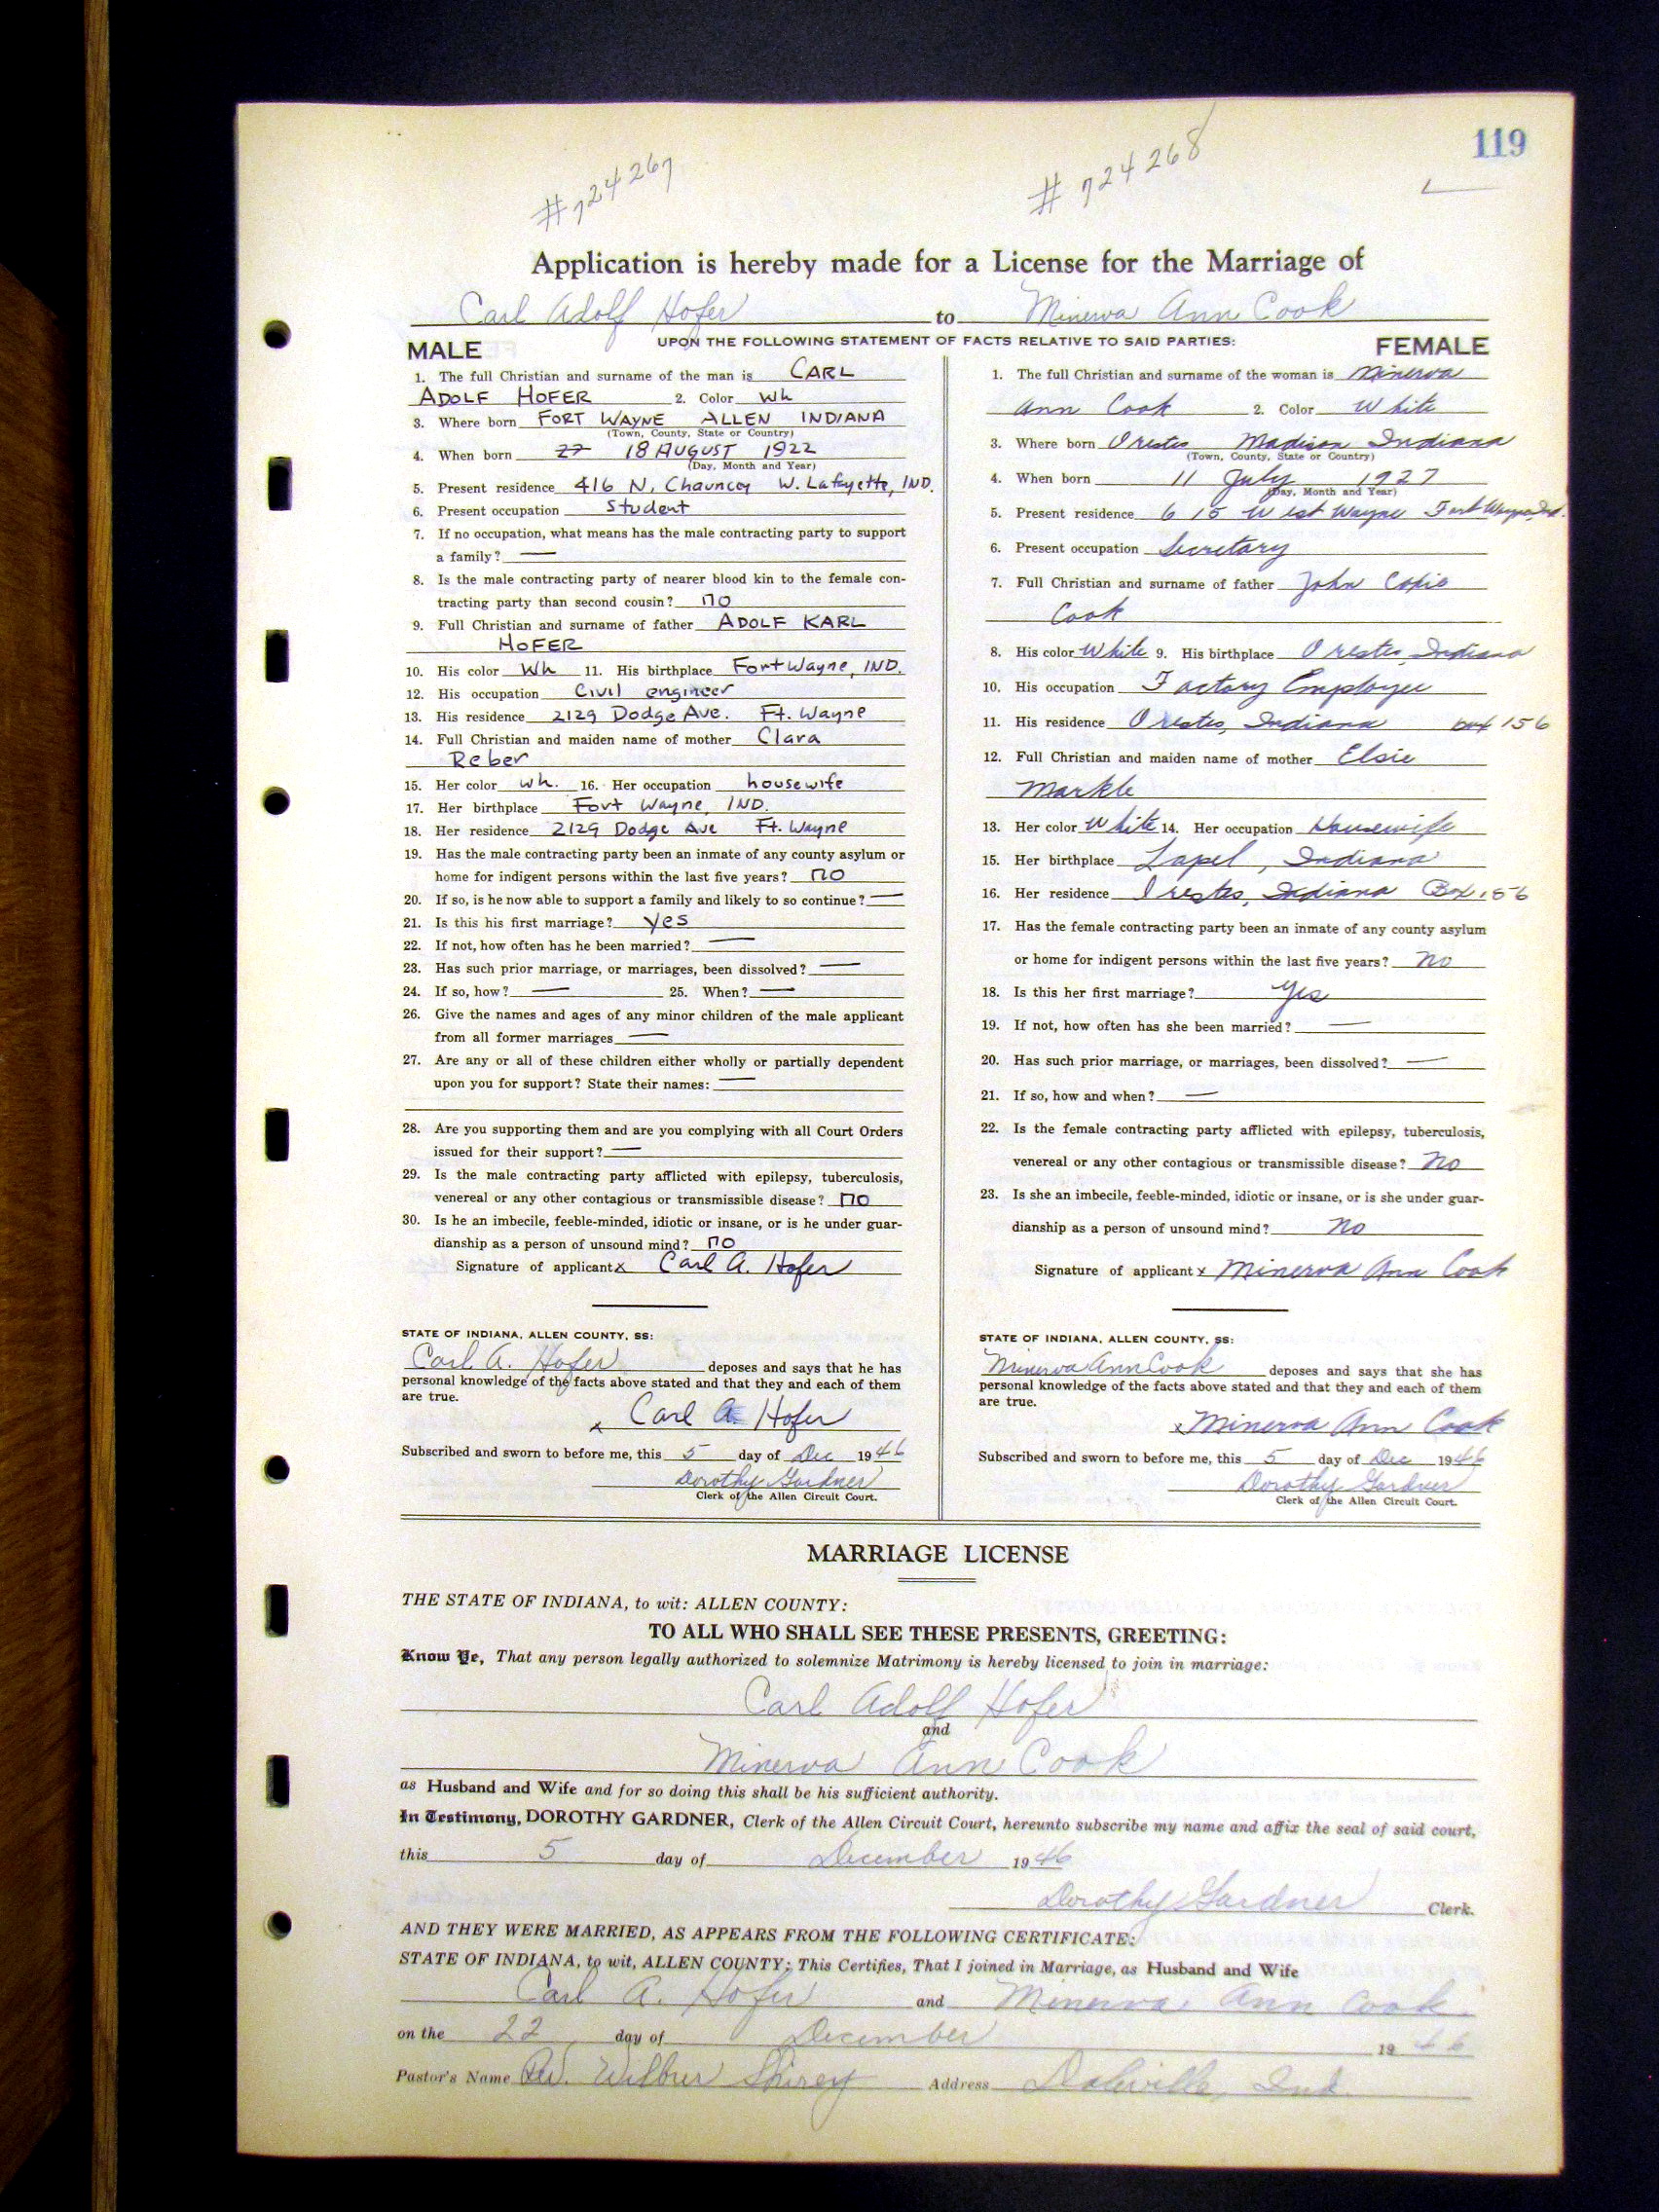 119
#724267
#724268
Application is hereby made for a License for the Marriage of
Carl Adolf Hofer to Minerva Ann Cook
UPON THE FOLLOWING STATEMENT OF FACTS RELATIVE TO SAID PARTIES:
MALE
1. The full Christian and surname of the man is CARL
ADOLF HOFER 2. Color Wh
3. Where born FORT WAYNE ALLEN INDIANA
(Town, County, State or Country)
4. When born 18 AUGUST 1922
(Day, Month and Year)
5. Present residence 416 N. Chauncey W. Lafayette, IND.
6. Present occupation Student
7. If no occupation, what means has the male contracting party to support
a family? —
8. Is the male contracting party of nearer blood kin to the female con-
tracting party than second cousin? no
9. Full Christian and surname of father ADOLF KARL
HOFER
10. His color Wh 11. His birthplace Fort Wayne, IND.
12. His occupation Civil engineer
13. His residence 2129 Dodge Ave. Ft. Wayne
14. Full Christian and maiden name of mother Clara
Reber
15. Her color wh. 16. Her occupation housewife
17. Her birthplace Fort Wayne, IND.
18. Her residence 2129 Dodge Ave Ft. Wayne
19. Has the male contracting party been an inmate of any county asylum or
home for indigent persons within the last five years? no
20. If so, is he now able to support a family and likely to so continue? —
21. Is this his first marriage? yes
22. If not, how often has he been married? —
23. Has such prior marriage, or marriages, been dissolved? —
24. If so, how? — 25. When? —
26. Give the names and ages of any minor children of the male applicant
from all former marriages —
27. Are any or all of these children either wholly or partially dependent
upon you for support? State their names: —
28. Are you supporting them and are you complying with all Court Orders
issued for their support? —
29. Is the male contracting party afflicted with epilepsy, tuberculosis,
venereal or any other contagious or transmissible disease? no
30. Is he an imbecile, feeble-minded, idiotic or insane, or is he under guar-
dianship as a person of unsound mind? no
Signature of applicant x Carl A. Hofer
STATE OF INDIANA, ALLEN COUNTY, SS:
Carl A. Hofer deposes and says that he has
personal knowledge of the facts above stated and that they and each of them
are true.
x Carl A. Hofer
Subscribed and sworn to before me, this 5 day of Dec 1946
Dorothy Gardner
Clerk of the Allen Circuit Court.
FEMALE
1. The full Christian and surname of the woman is Minerva
Ann Cook 2. Color White
3. Where born Orestes Madison Indiana
(Town, County, State or Country)
4. When born 11 July 1927
(Day, Month and Year)
5. Present residence 615 West Wayne Fort Wayne, Ind.
6. Present occupation Secretary
7. Full Christian and surname of father John
Cook
8. His color White 9. His birthplace Orestes, Indiana
10. His occupation Factory Employee
11. His residence Orestes, Indiana box 156
12. Full Christian and maiden name of mother Elsie
Markle
13. Her color White 14. Her occupation Housewife
15. Her birthplace Lapel, Indiana
16. Her residence Orestes, Indiana Box 156
17. Has the female contracting party been an inmate of any county asylum
or home for indigent persons within the last five years? No
18. Is this her first marriage? yes
19. If not, how often has she been married? —
20. Has such prior marriage, or marriages, been dissolved? —
21. If so, how and when? —
22. Is the female contracting party afflicted with epilepsy, tuberculosis,
venereal or any other contagious or transmissible disease? No
23. Is she an imbecile, feeble-minded, idiotic or insane, or is she under guar-
dianship as a person of unsound mind? No
Signature of applicant x Minerva Ann Cook
STATE OF INDIANA, ALLEN COUNTY, SS:
Minerva Ann Cook deposes and says that she has
personal knowledge of the facts above stated and that they and each of them
are true.
x Minerva Ann Cook
Subscribed and sworn to before me, this 5 day of Dec 1946
Dorothy Gardner
Clerk of the Allen Circuit Court.
MARRIAGE LICENSE
THE STATE OF INDIANA, to wit: ALLEN COUNTY:
TO ALL WHO SHALL SEE THESE PRESENTS, GREETING:
Know Ye, That any person legally authorized to solemnize Matrimony is hereby licensed to join in marriage:
Carl Adolf Hofer
and
Minerva Ann Cook
as Husband and Wife and for so doing this shall be his sufficient authority.
In Testimony, DOROTHY GARDNER, Clerk of the Allen Circuit Court, hereunto subscribe my name and affix the seal of said court,
this 5 day of December 1946
Dorothy Gardner Clerk.
AND THEY WERE MARRIED, AS APPEARS FROM THE FOLLOWING CERTIFICATE:
STATE OF INDIANA, to wit, ALLEN COUNTY: This Certifies, That I joined in Marriage, as Husband and Wife
Carl A. Hofer and Minerva Ann Cook
on the 22 day of December 1946
Pastor's Name Rev. Wilbur Shirey Address Daleville, Ind.